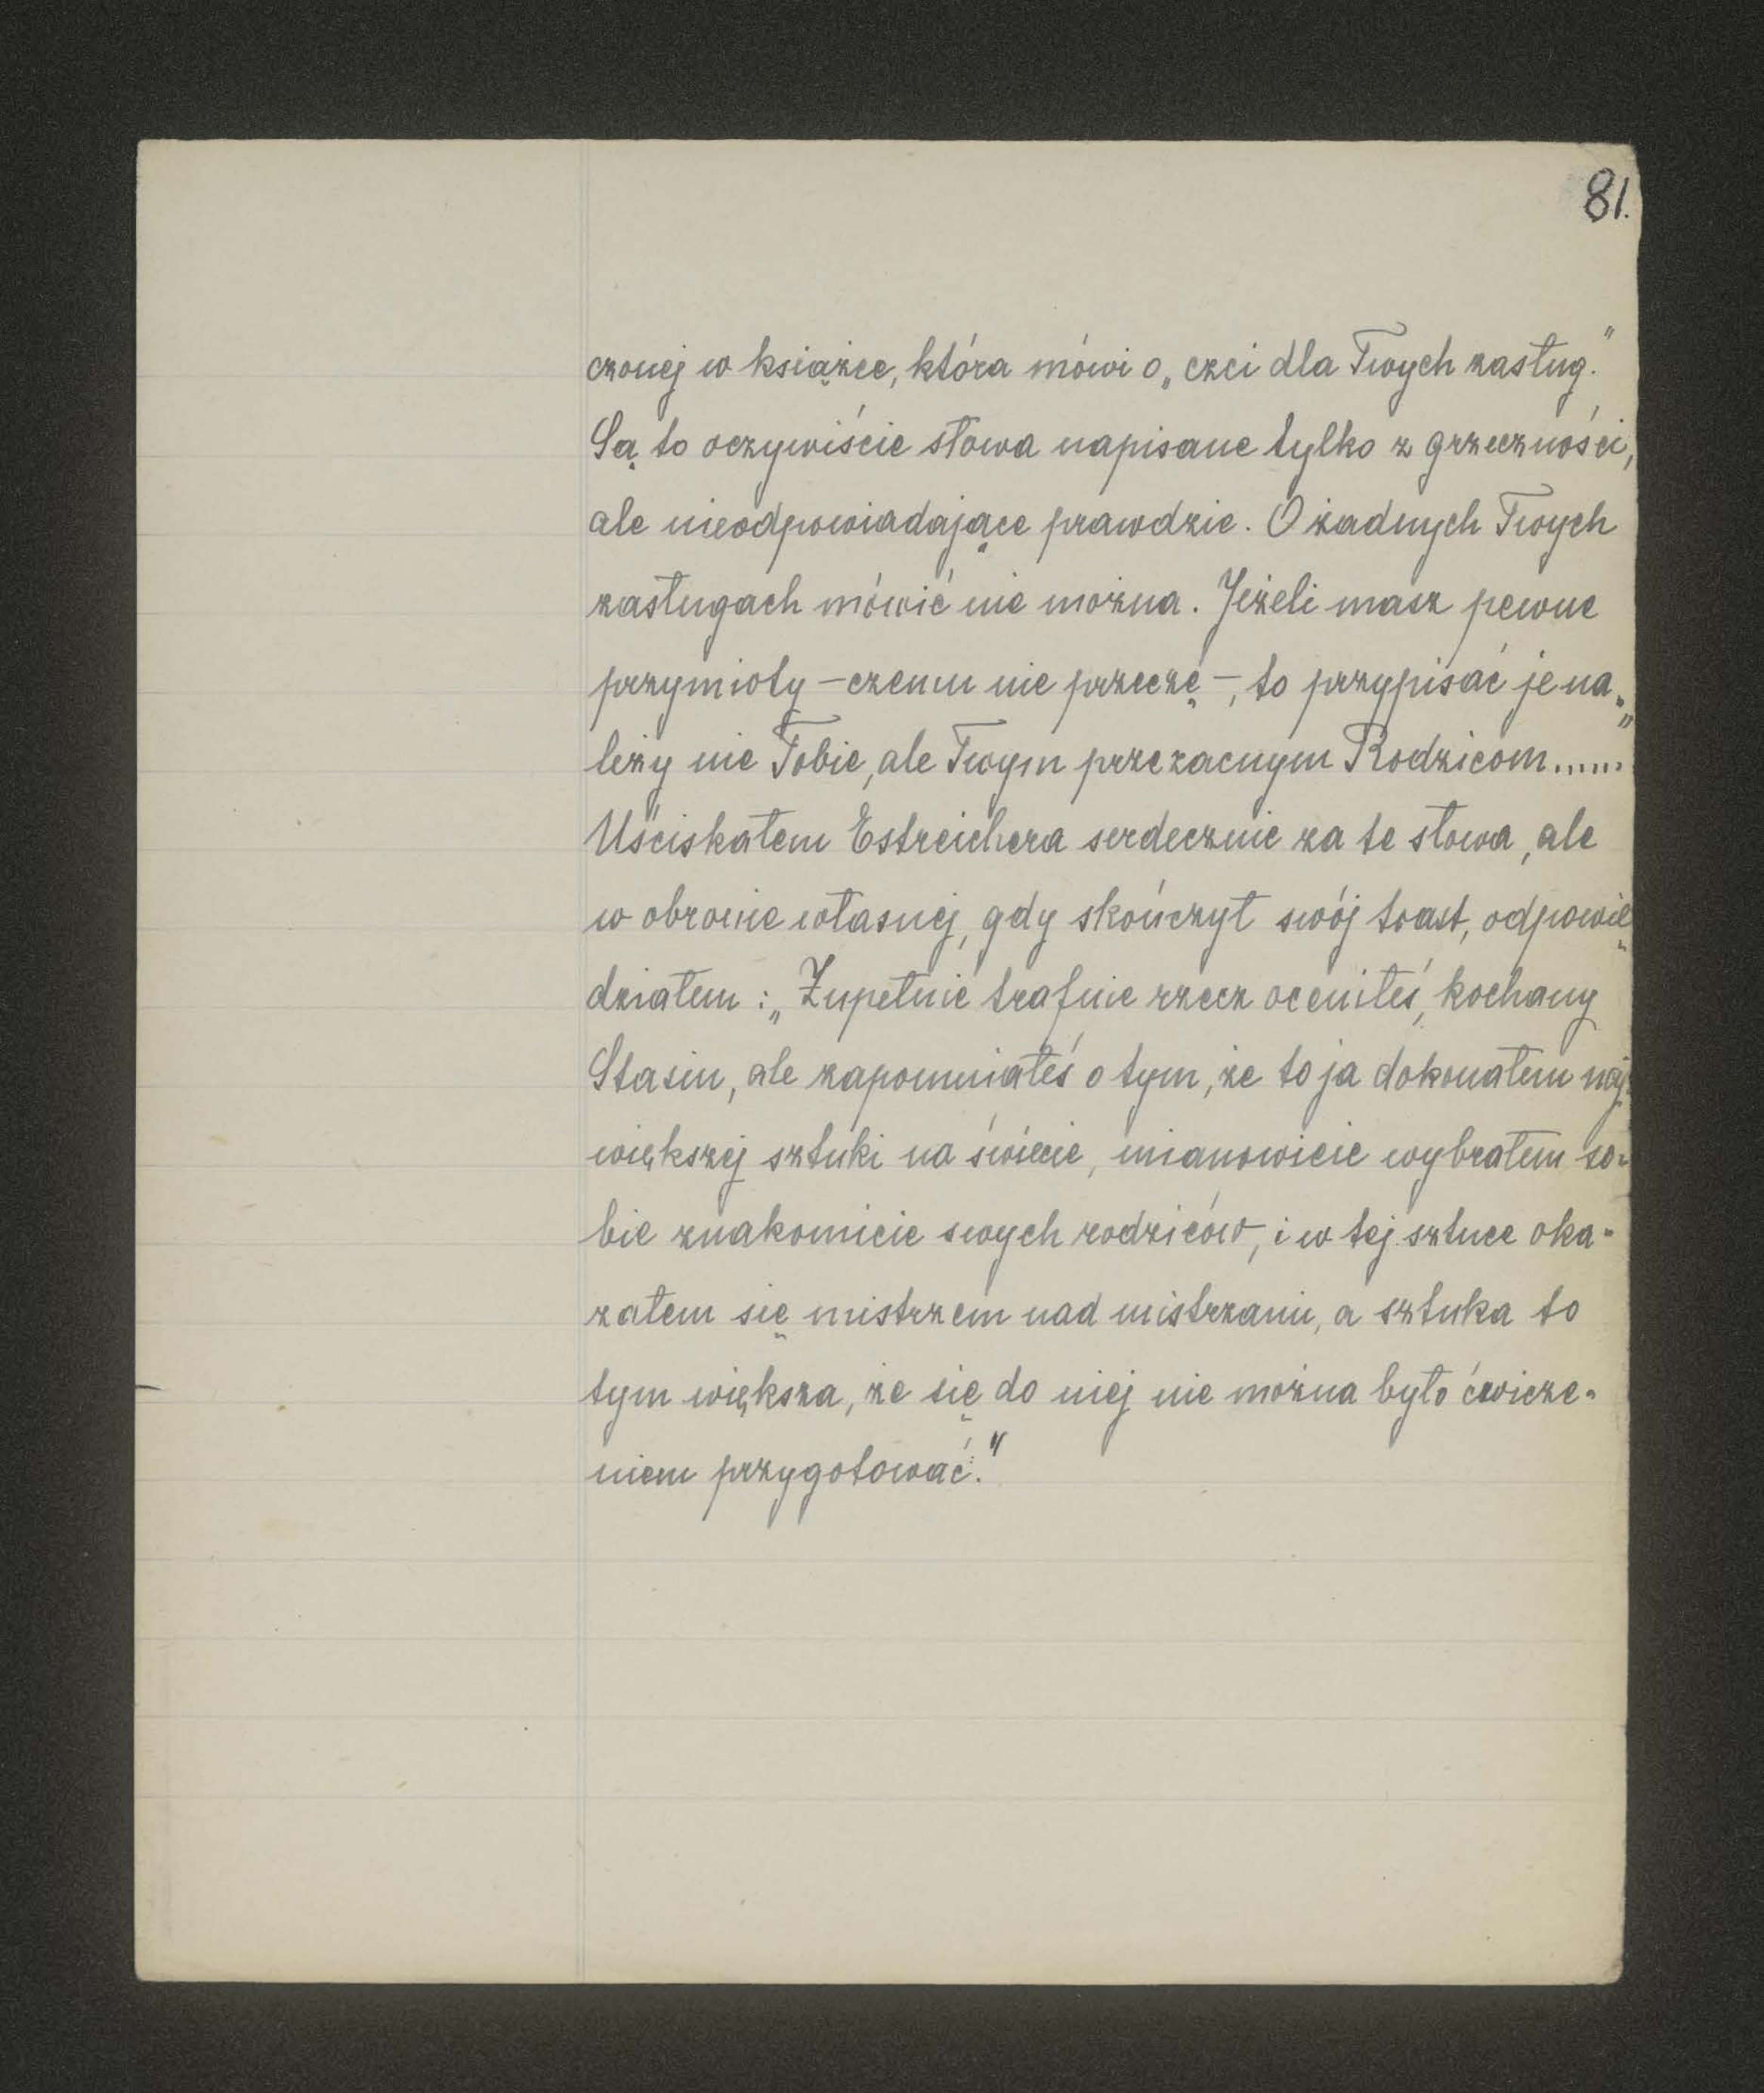 81.
czonej w książce, która mówi o „czci dla Twych zasług."
Są to oczywiście słowa napisane tylko z grzeczności,
ale nieodpowiadające prawdzie. O żadnych Twych
zasługach mówić nie można. Jeżeli masz pewne
przymioty – czemu nie przeczę –, to przypisać je na-
leży nie Tobie, ale Twym przezacnym Rodzicom......"
Uściskałem Estreichera serdecznie za te słowa, ale
w obronie własnej, gdy skończył swój toast, odpowie-
działem: „Zupełnie trafnie rzecz oceniłeś, kochany
Stasiu, ale zapomniałeś o tym, że to ja dokonałem naj-
większej sztuki na świecie, mianowicie wybrałem so-
bie znakomicie swych rodziców, i w tej sztuce oka-
załem się mistrzem nad mistrzami, a sztuka to
tym większa, że się do niej nie można było ćwicze-
niem przygotować."